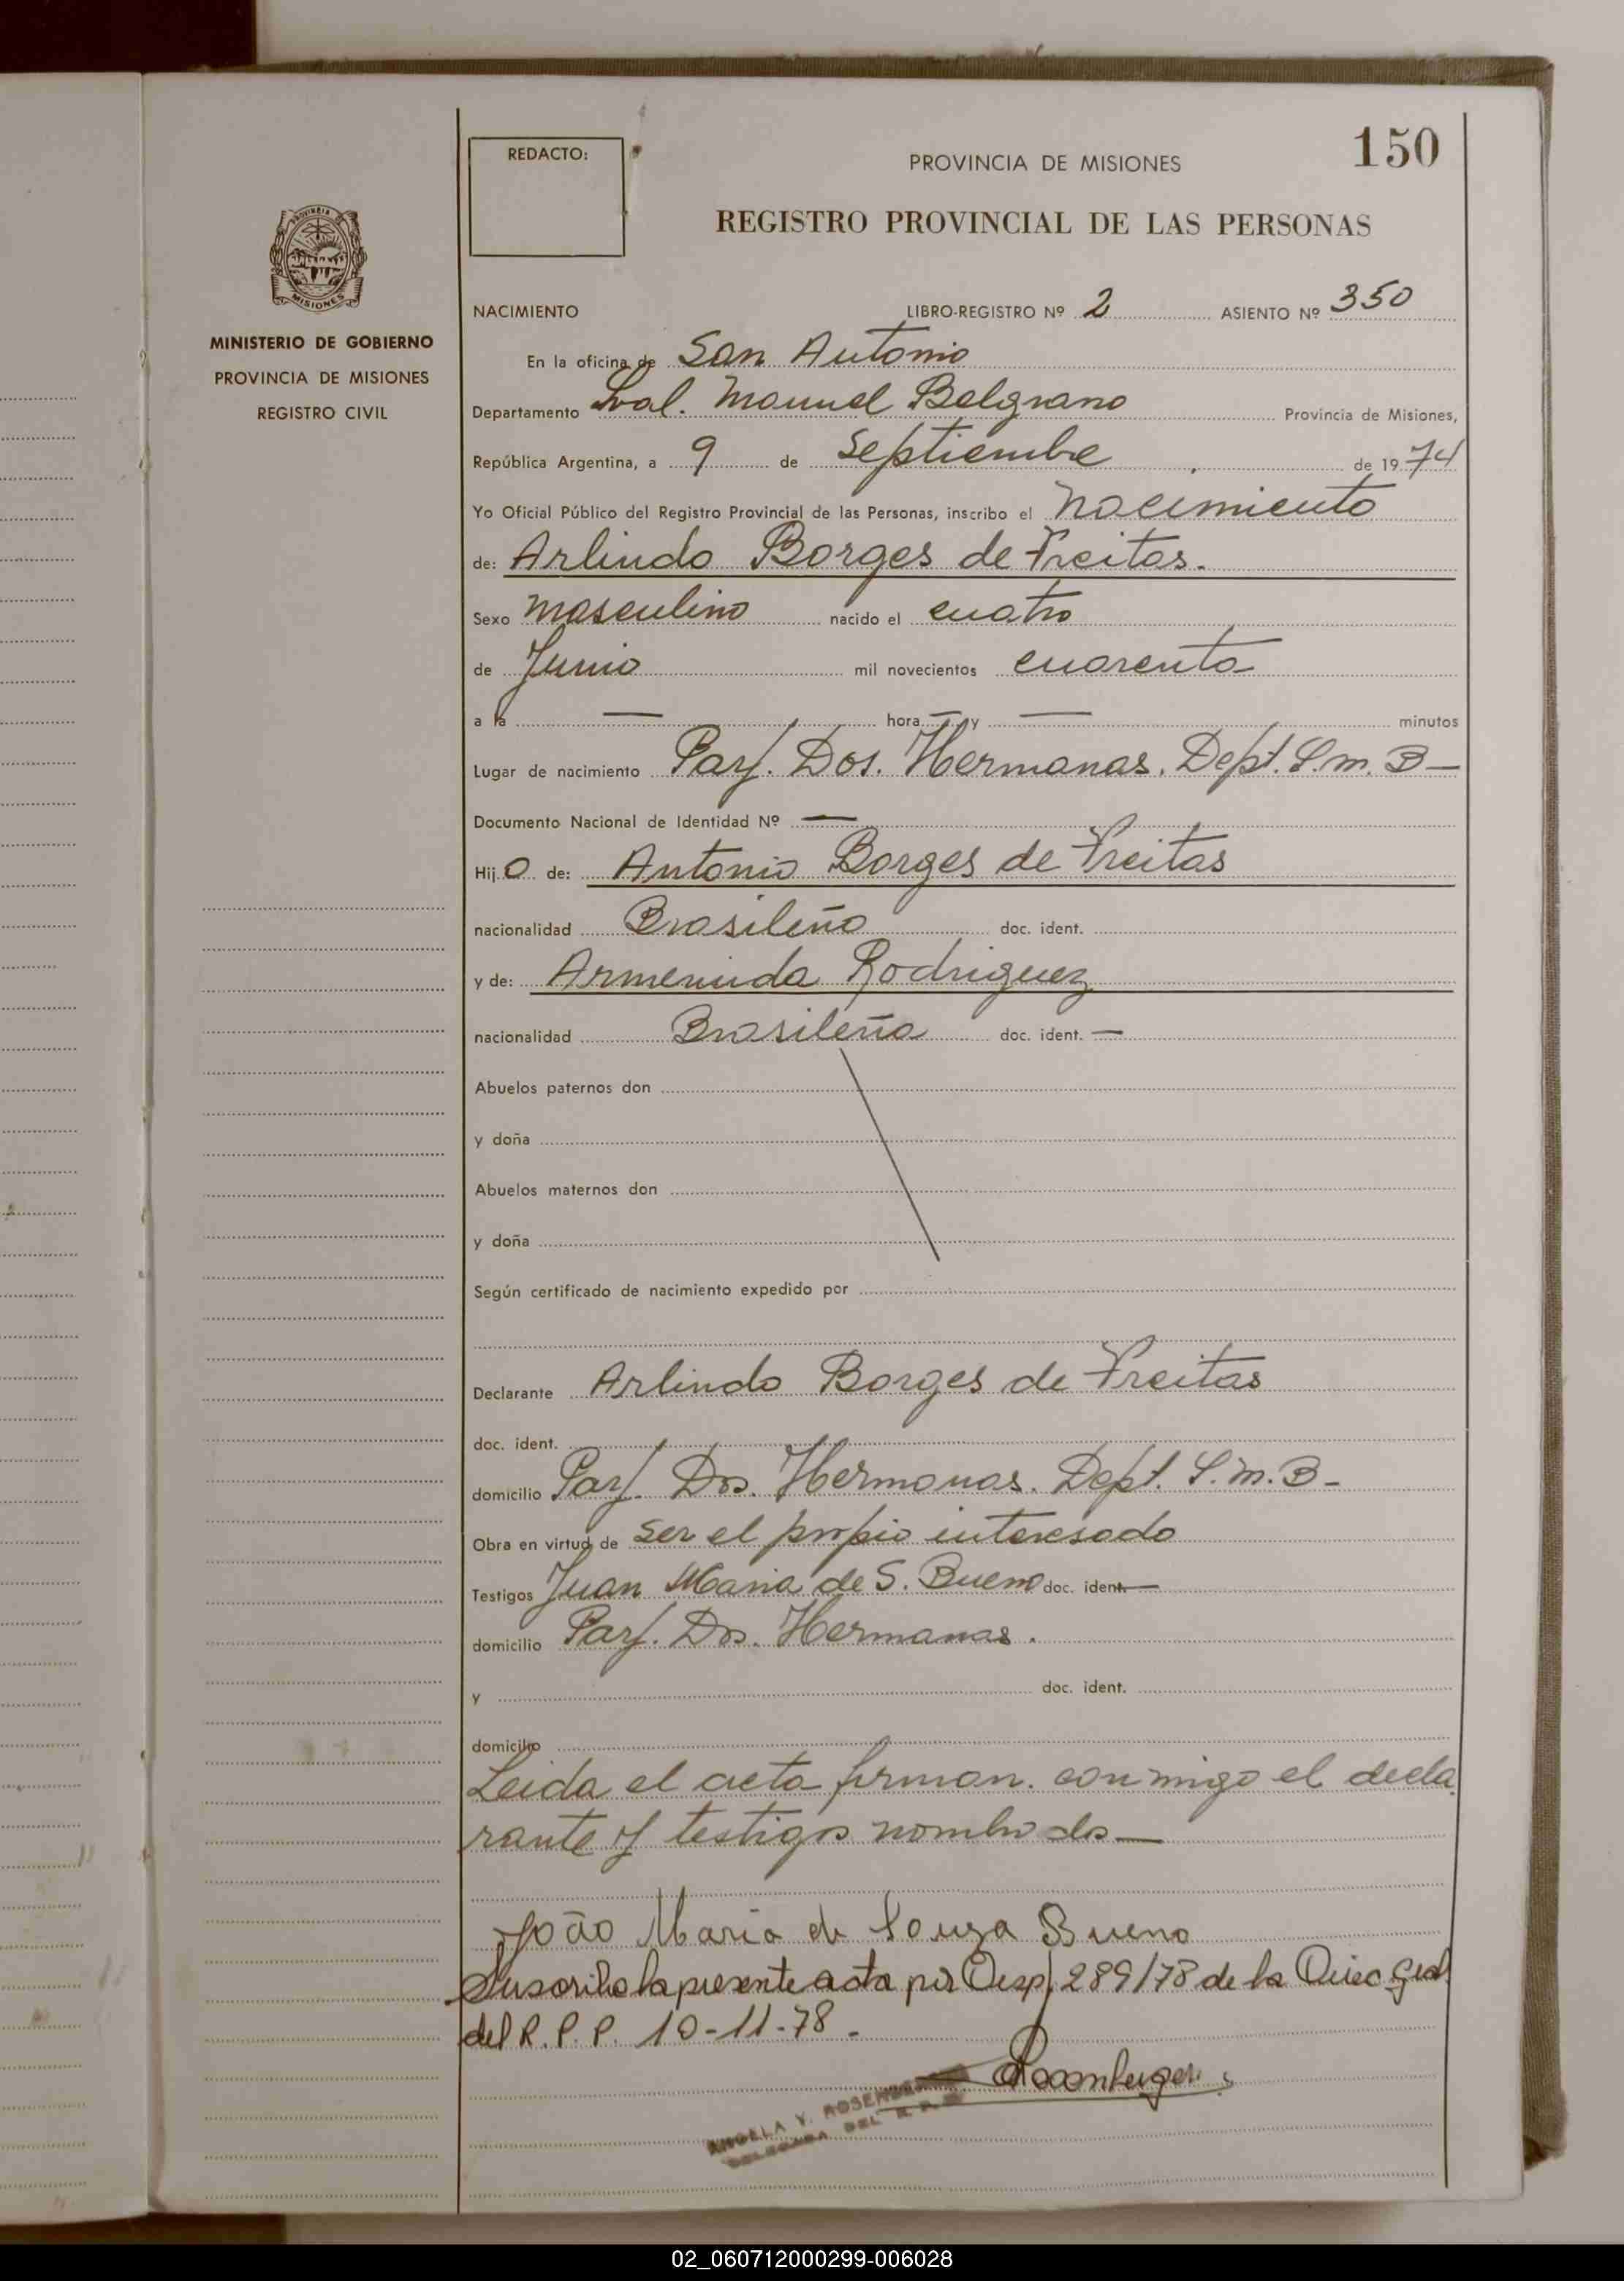 150
REDACTO:
PROVINCIA DE MISIONES
REGISTRO PROVINCIAL DE LAS PERSONAS
MISIONES
MINISTERIO DE GOBIERNO
PROVINCIA DE MISIONES
REGISTRO CIVIL
NACIMIENTO LIBRO-REGISTRO Nº 2 ASIENTO Nº 350
En la oficina de San Antonio
Departamento Gral. Manuel Belgrano Provincia de Misiones,
República Argentina, a 9 de Septiembre de 1974
Yo Oficial Público del Registro Provincial de las Personas, inscribo el nacimiento
de: Arlindo Borges de Freitas.
Sexo masculino nacido el cuatro
de Junio mil novecientos cuarenta
a la — hora — y — minutos
Lugar de nacimiento Parj. Dos. Hermanas. Dept. G.m.B—
Documento Nacional de Identidad Nº —
Hijo de: Antonio Borges de Freitas
nacionalidad Brasileño doc. ident.
y de: Armeninda Rodriguez
nacionalidad Brasileña doc. ident. —
Abuelos paternos don
y doña
Abuelos maternos don
y doña
Según certificado de nacimiento expedido por
Declarante Arlindo Borges de Freitas
doc. ident.
domicilio Parj. Dos. Hermanas. Dept. G.m.B-
Obra en virtud de ser el propio interesado
Testigos Juan Maria de S. Bueno doc. ident. —
domicilio Parj. Dos. Hermanas.
y doc. ident.
domicilio
Leida el acta firman. conmigo el decla
rante y testigos nombrados—
João Maria de Souza Bueno
Suscribo la presente acta por Desp/ 289/78 de la Direc Gral.
del R.P.P. 10-11-78.
DELEGADA DEL R. P. P.
02_060712000299-006028